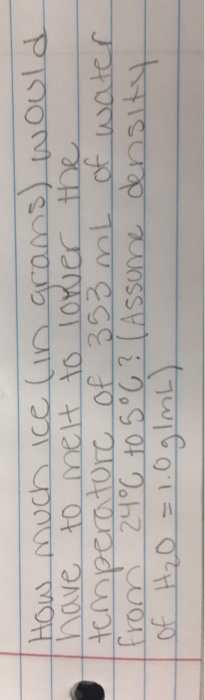 How much ice (in grams) would
have to melt to lower the
temperature of 353 mL of water
from 24°C to 5°C? (Assume density
of H₂O = 1.0 g/mL)